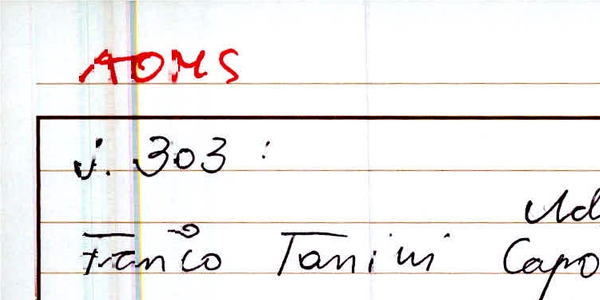 AOMS
j. 303 :
Franco Tanini Capo